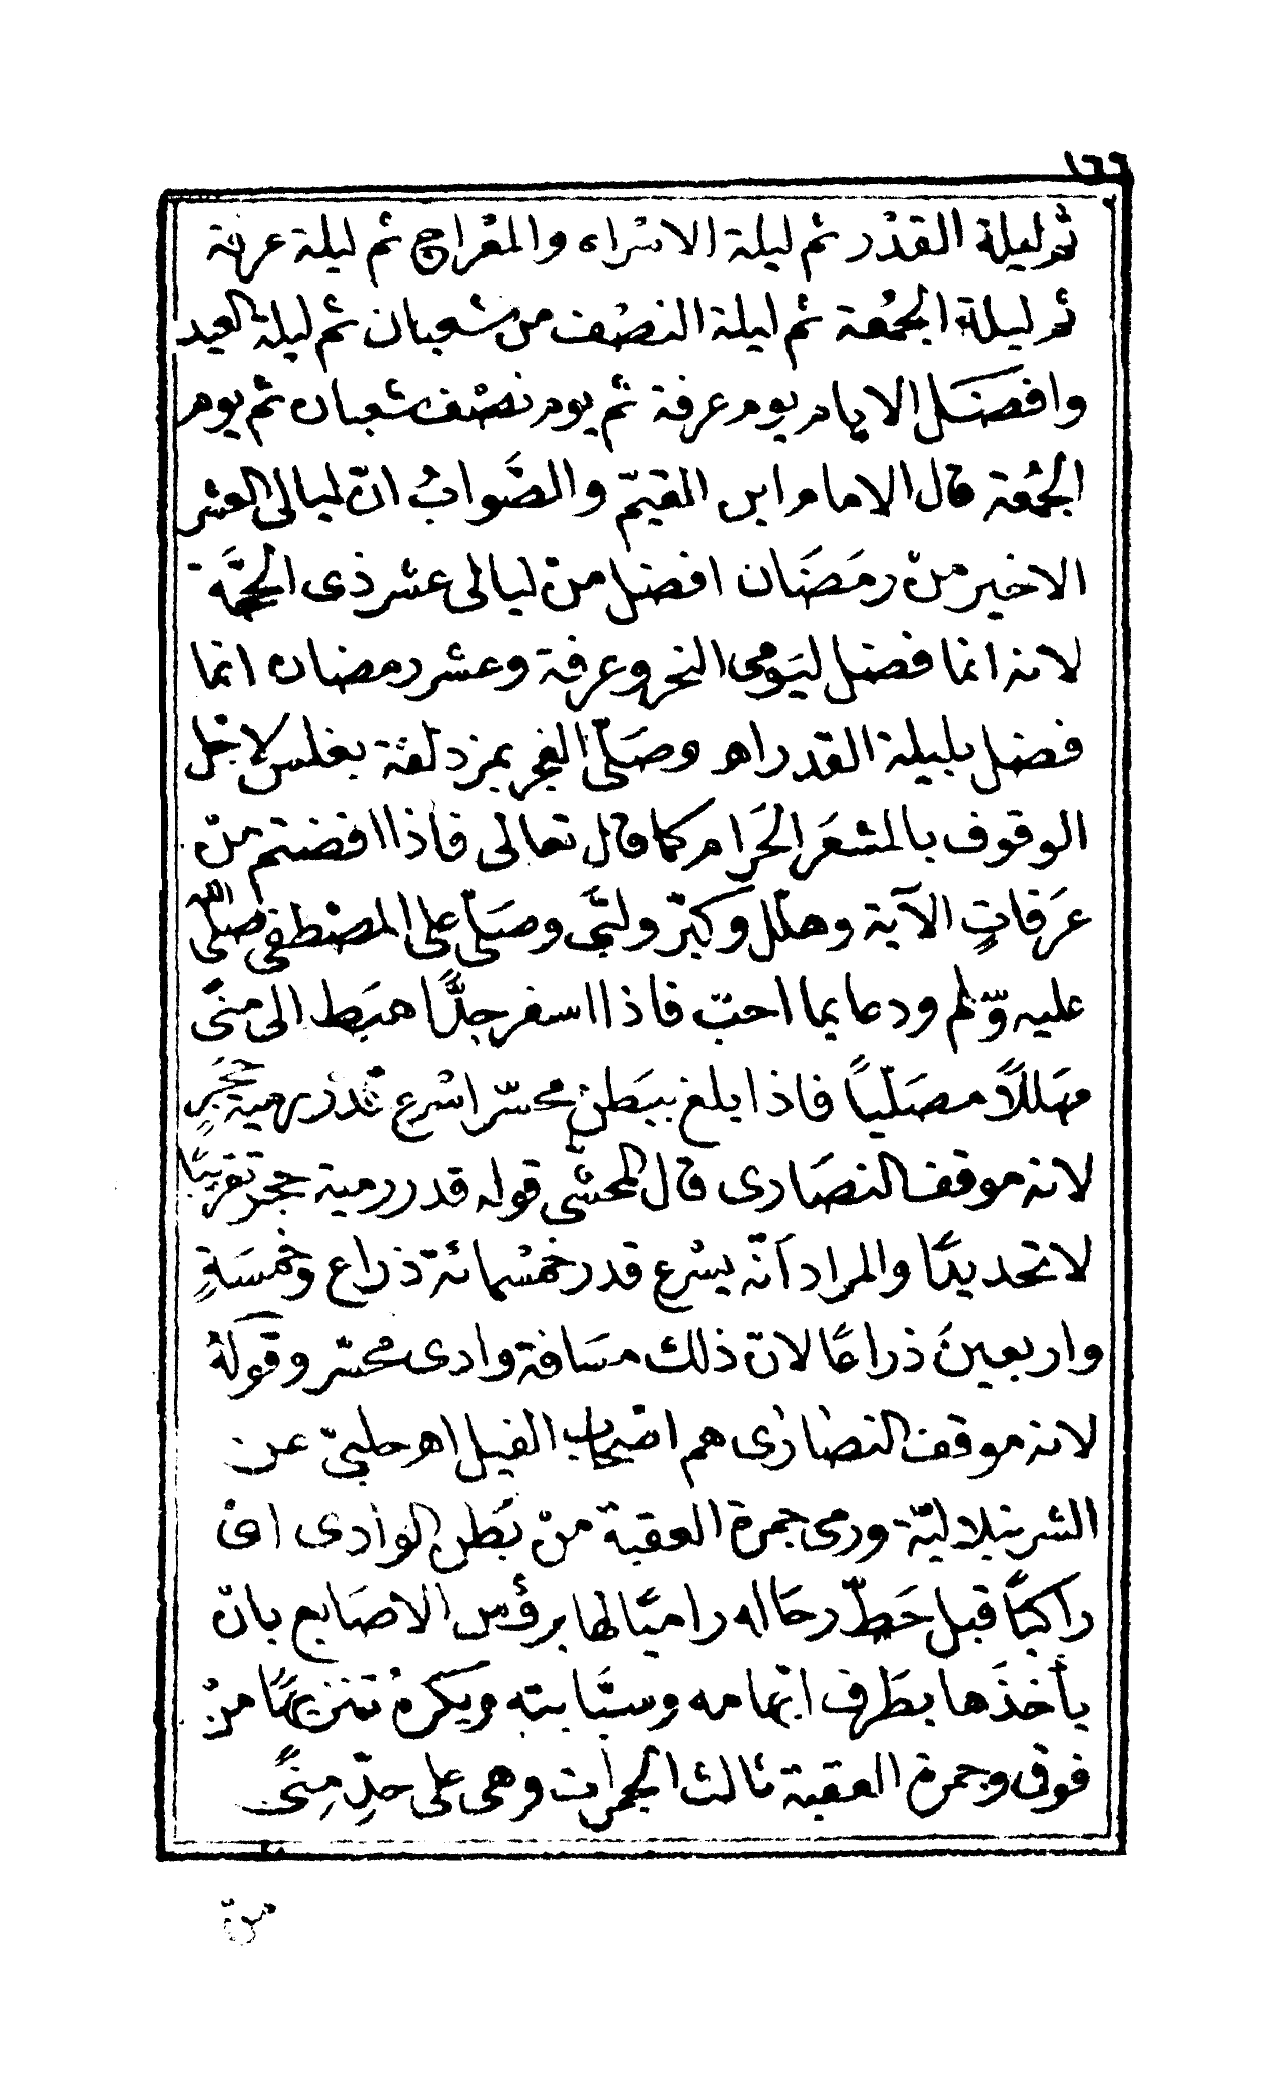 ١٦٦
ثم ليلة القدْر ثم ليلة الاسْراء والمعْراج ثم ليلة عرفة
ثم ليلة الجمُعة ثم ليلة النصْف من شعبان ثم ليلة العيد
وافضَل الايام يوم عرفة ثم يوم نصْف شعبان ثم يوم
الجمُعة قال الامام ابن القيّم والصَّوابُ انّ ليالى العشر
الاخير منْ رمَضَان افضل منْ ليالى عشر ذى الحجَّة
لانه انما فضل ليَومى النحر وعرفة وعشر رمضان انما
فضل بليلة القدر اهـ وصَلّى الفجر بمزدلفة بغلس لاجْل
الوقوف بالمشعَر الحَرام كما قال تعالى فاذا افضتم منْ
عَرفاتٍ الآية وهلّل وكبّر ولبَّى وصَلّى على المصْطفى صلّى الله
عليه وسّلم ودعا بما احبّ فاذا اسفر جدًّا هبَط الى منًى
مهَللًا مصَلّيًا فاذا بلغ ببَطن محسّر اسْرع قدْر رمية حَجَرٍ
لانه موقف النصَارى قال المحشّى قوله قدر رمية حجر تقريبًا
لا تحديدًا والمراد أنّه يسْرع قدر خمْسمائة ذراع وخمسَةٍ
واربعينَ ذراعًا لانّ ذلك مسَافة وادى محسّر وقولهُ
لانه موقف النصَارٰى هم اصْحاب الفيل اهـ حلبىّ عن
الشرنبلاليّة ورمى جمرة العقبة منْ بَطن الوادى اىْ
راكبًا قبل حَطّ رحَاله راميًا لها برؤس الاصَابع بانّ
يأخذَها بطَرف ابهامه وسبَّابته ويكرهُ تنزيهًا منْ
فوق وجمرة العقبة ثالث الجمرات وهى على حدِّ مِنًى
منّ